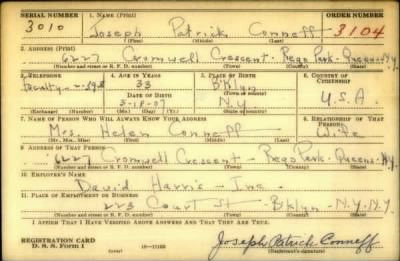 SERIAL NUMBER 1. NAME (Print) ORDER NUMBER
3010 Joseph Patrick Conneff 3104
(First) (Middle) (Last)
2. ADDRESS (Print)
6227 Cromwell Crescent - Rego Park - Queens - N.Y.
(Number and street or R. F. D. number) (Town) (County) (State)
3. TELEPHONE 4. AGE IN YEARS 5. PLACE OF BIRTH 6. COUNTRY OF CITIZENSHIP
33 B'klyn
DATE OF BIRTH (Town or county)
3-18-07 N.Y. U.S.A.
(Exchange) (Number) (Mo.) (Day) (Yr.) (State or country)
7. NAME OF PERSON WHO WILL ALWAYS KNOW YOUR ADDRESS 8. RELATIONSHIP OF THAT PERSON
Mrs. Helen Conneff Wife
(Mr., Mrs., Miss) (First) (Middle) (Last)
9. ADDRESS OF THAT PERSON
6227 Cromwell Crescent - Rego Park - Queens - N.Y.
(Number and street or R. F. D. number) (Town) (County) (State)
10. EMPLOYER'S NAME
David Harris - Inc.
11. PLACE OF EMPLOYMENT OR BUSINESS
223 Court St - B'klyn - N.Y. N.Y.
(Number and street or R. F. D. number) (Town) (County) (State)
I AFFIRM THAT I HAVE VERIFIED ABOVE ANSWERS AND THAT THEY ARE TRUE.
REGISTRATION CARD
D. S. S. Form 1 (over) Joseph Patrick Conneff
(Registrant's signature)